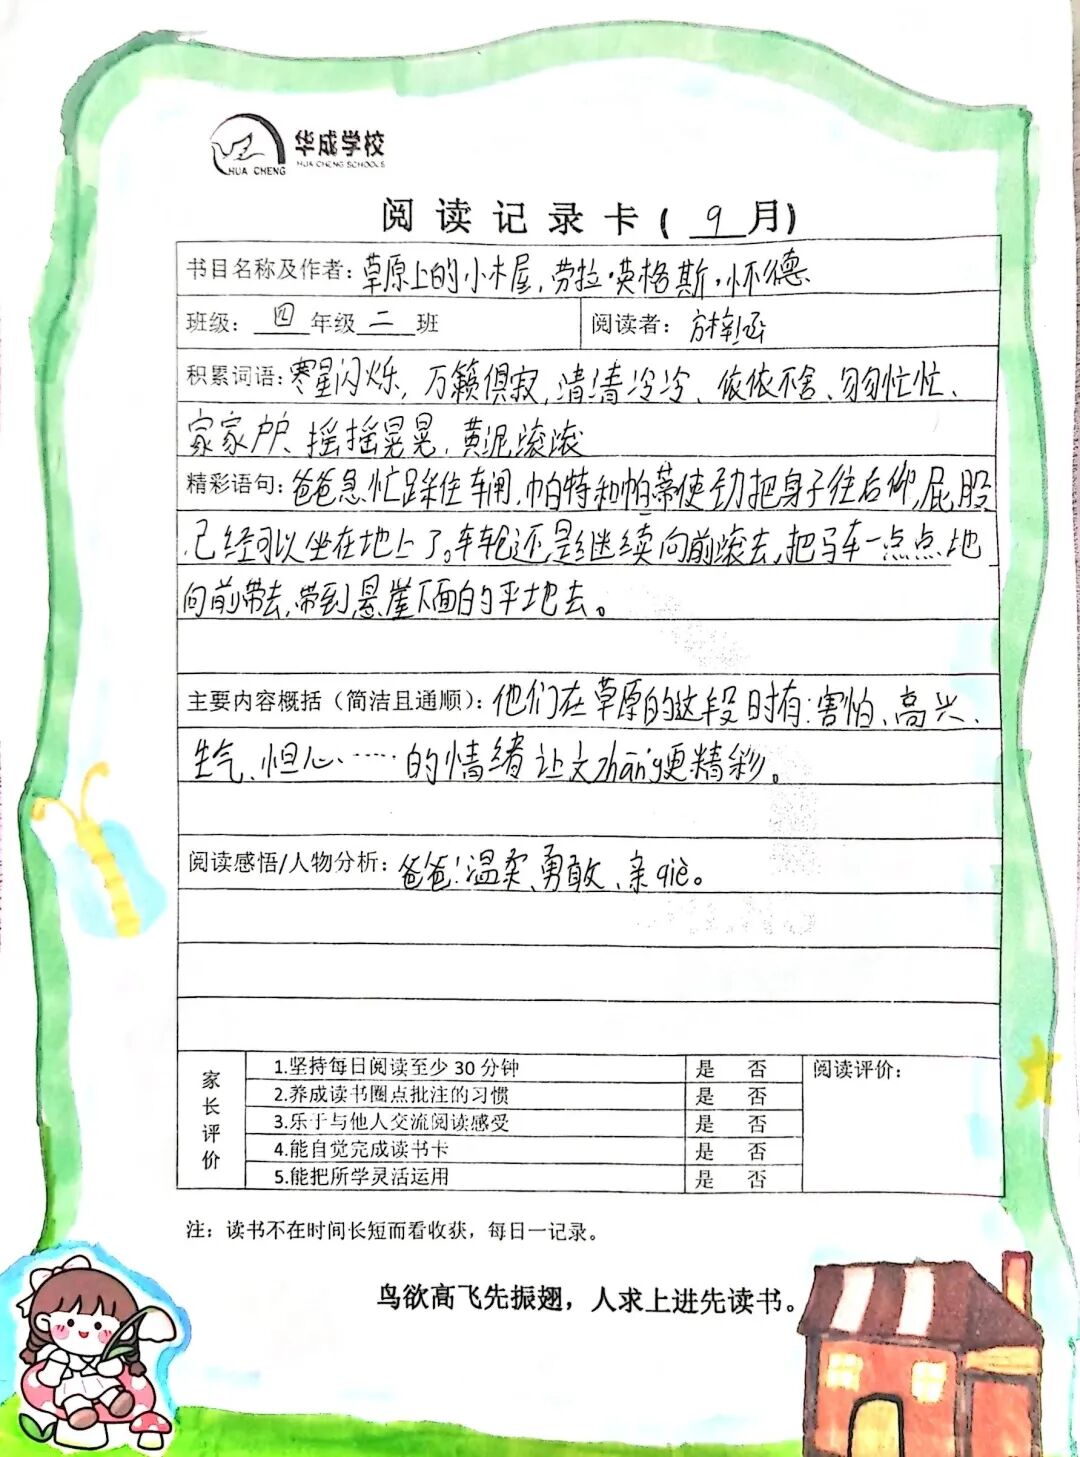 华成学校
HUA CHENG SCHOOLS
HUA CHENG
阅读记录卡(9月)
书目名称及作者:草原上的小木屋,劳拉·英格斯·怀德
班级:四年级二班 阅读者:方梓涵
积累词语:寒星闪烁,万籁俱寂,清清冷冷、依依不舍、匆匆忙忙、
家家户户、摇摇晃晃,黄泥滚滚
精彩语句:爸爸急忙踩住车闸,帕特和帕蒂使劲把身子往后仰,屁股
已经可以坐在地上了。车轮还是继续向前滚去,把马车一点点地
向前带去,带到悬崖下面的平地去。
主要内容概括(简洁且通顺):他们在草原的这段时有:害怕、高兴、
生气、担心、……的情绪让文zhāng更精彩。
阅读感悟/人物分析:爸爸!温柔、勇敢、亲qiè。
家长评价
1.坚持每日阅读至少30分钟 是 否
2.养成读书圈点批注的习惯 是 否
3.乐于与他人交流阅读感受 是 否
4.能自觉完成读书卡 是 否
5.能把所学灵活运用 是 否
阅读评价:
注:读书不在时间长短而看收获,每日一记录。
鸟欲高飞先振翅,人求上进先读书。